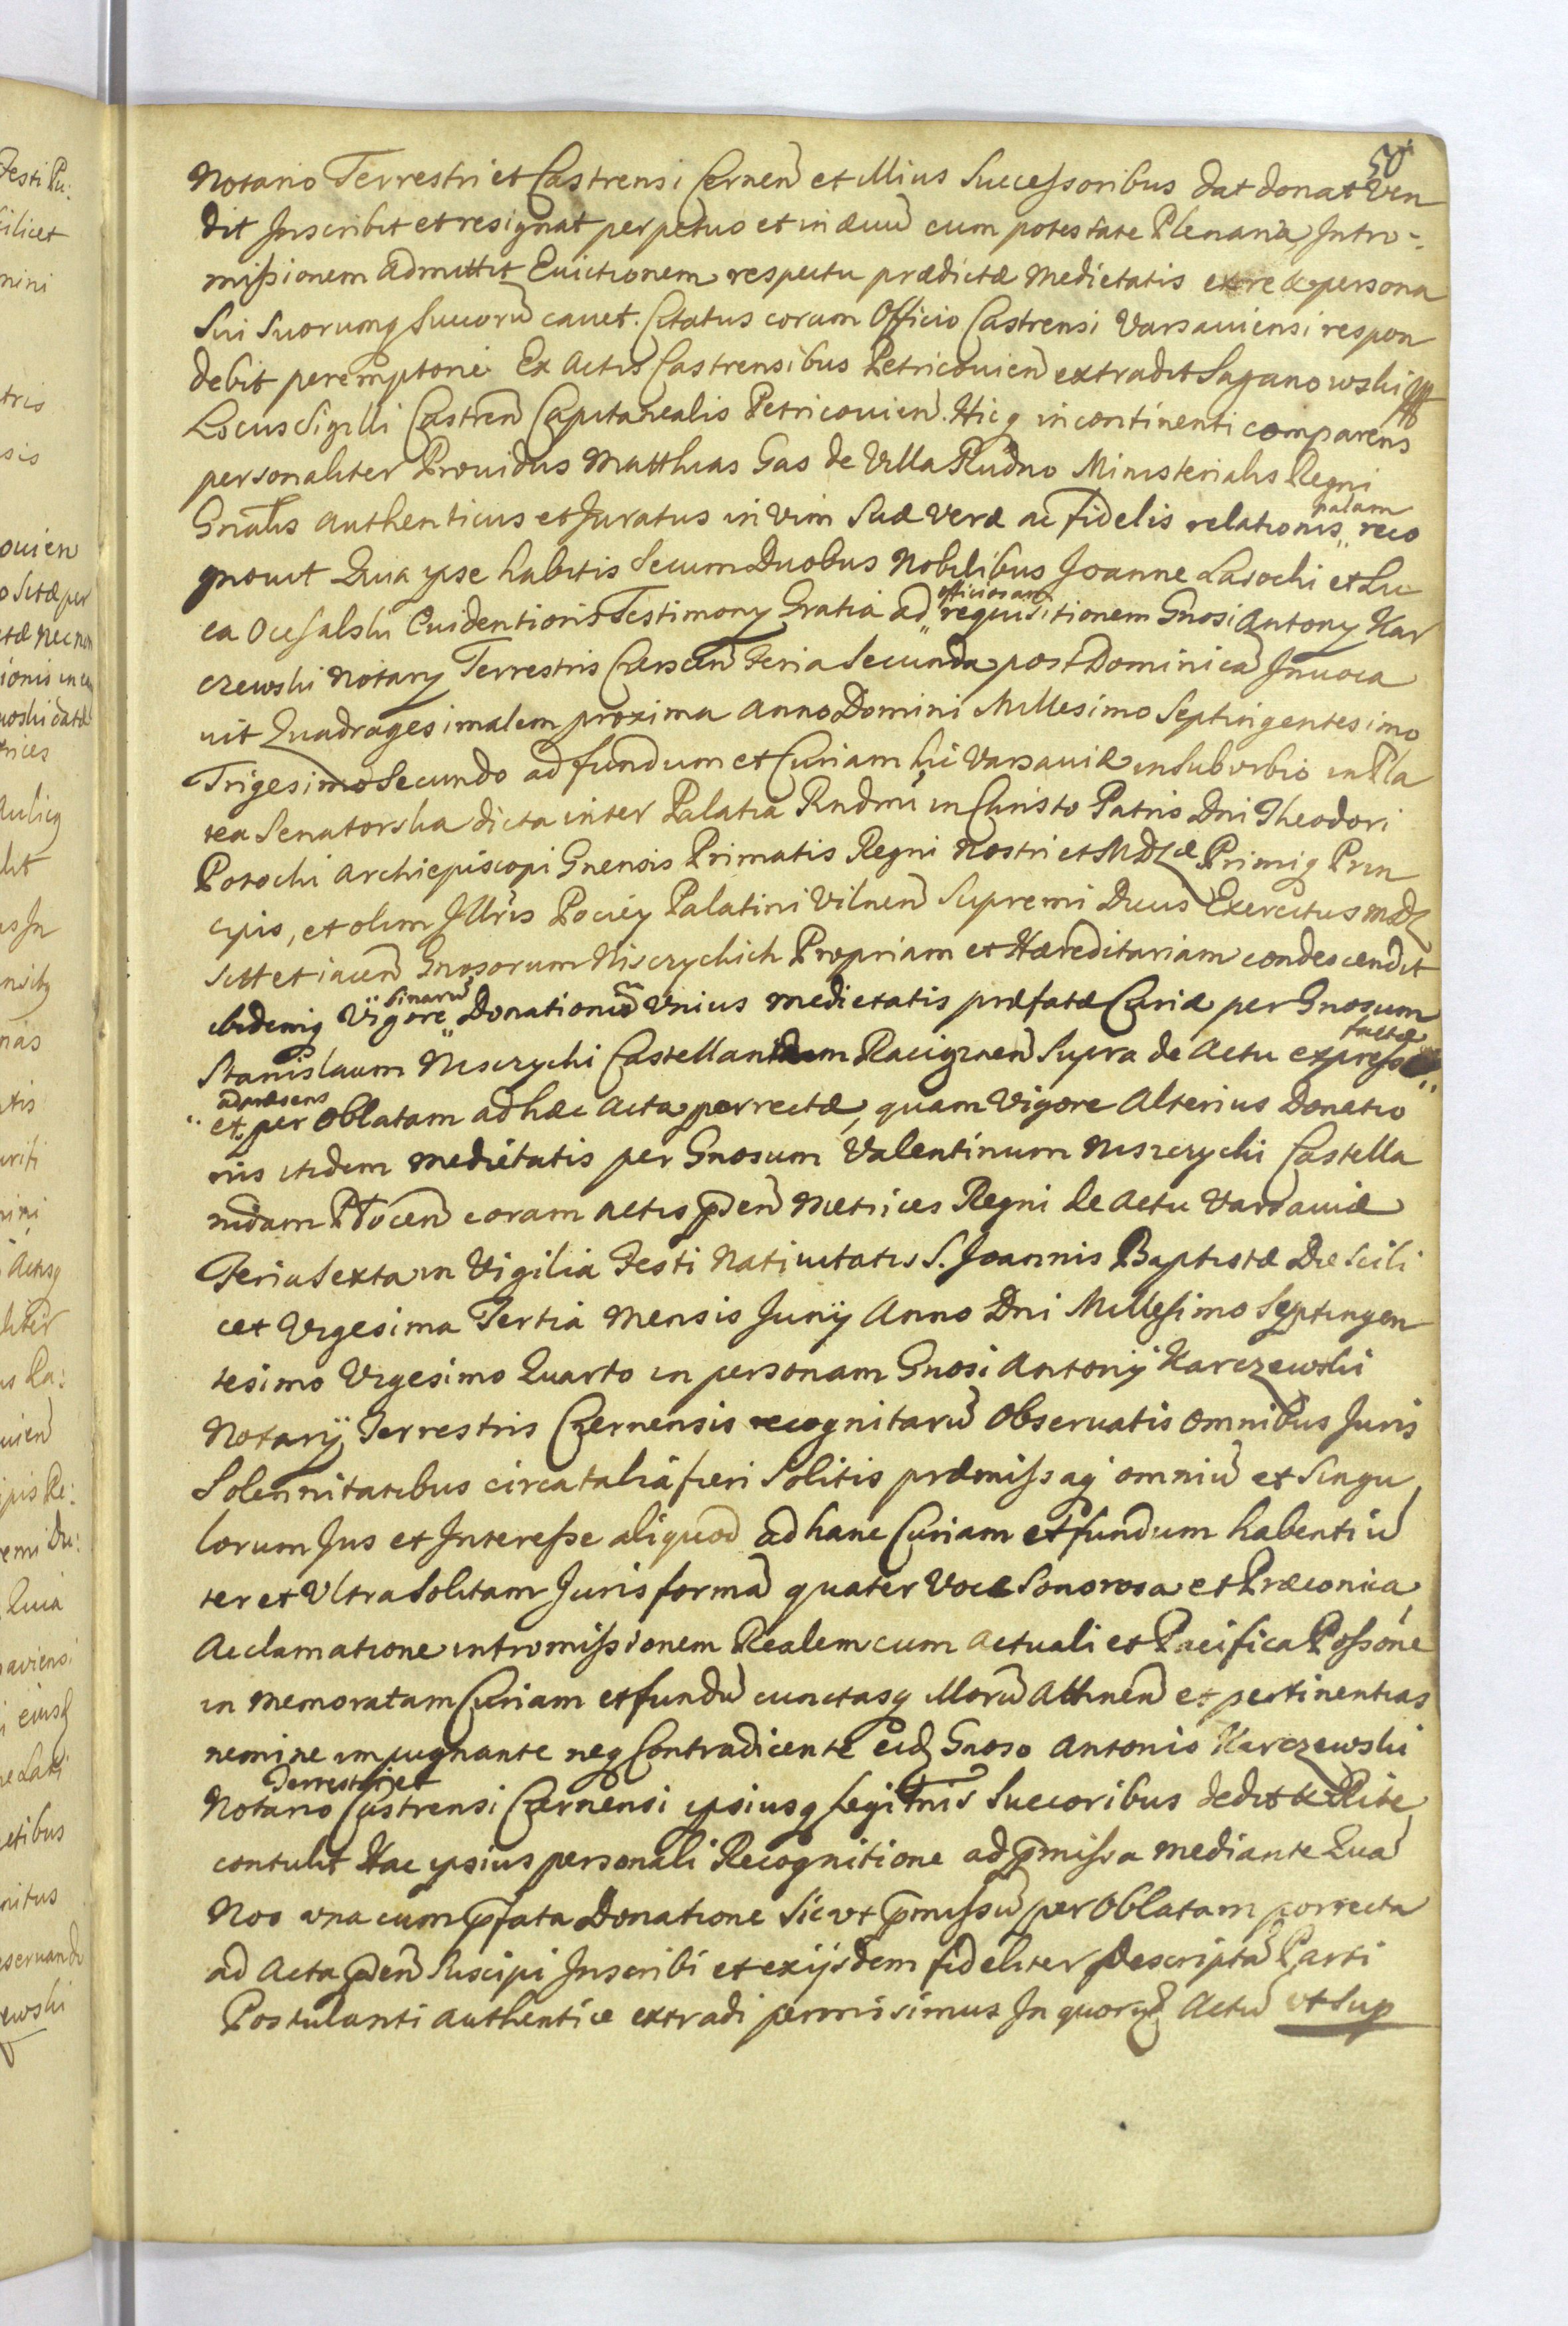 50
Notario Terrestri et Castrensi Cernen et illius Successoribus dat donat Ven
dit Inscribit et resignat perpetuo et in æuũ cum potestate Plenaria Intro-
missionem admittit Euictionem respectu prædictæ Medietatis ex re & persona
Sui Suorumq Succorũ cauet. Citatus coram Officio Castrensi Varsauiensi respon
debit peremptorie Ex Actis Castrensibus Petricouien extradit Saganowski
Locus Sigilli Castren Capitanealis Petricouien. Hicq incontinenti comparens
personaliter Prouidus Matthias Gas de Villa Rudno Ministerialis Regni
Gnalis authenticus et Juratus in vim Suæ veræ ac fidelis relationis palam reco
gnouit Quia ipse habitis Secum Duobus Nobilibus Joanne Lasochi et Lu
ca Ocesalski Euidentioris Testimony Gratia ad officiosam requisitionem Gnosi Antony Kar
czewski Notary Terrestris Czersen Feria Secunda post Dominicã Inuoca
uit Quadragesimalem proxima Anno Domini Millesimo Septingentesimo
Trigesimo Secundo ad fundum et Curiam hic Varsauiæ in Suburbio in Pla
tea Senatorska dicta inter Palatia Rndmi in Christo Patris Dni Theodori
Potochi Archiepiscopi Gnensis Primatis Regni Nostri et MDLæ Primiq Prin
cipis, et olim Illris Pociey Palatini Vilnen Supremi Ducis Exercitus MDL
sitt et iacen Gnosorum Niszczychich Propriam et Hæreditariam condescendit
ibidemq Vigore binarũ Donationũ Vnius medietatis præfatæ Curiæ per Gnosum
Stanislaum Niszczychi Castellanidam Raciąznen Supra de Actu expressæ factæ
et ad præsens per Oblatam ad hæc Acta porrectæ, quam Vigore Alterius Donatio
nis itidem medietatis per Gnosum Valentinum Niszczychi Castella
nidam Plocen coram actis pden Metrices Regni de Actu Varsauiæ
Feria Sexta in Vigilia Festi Natiuitatis S. Joannis Baptistæ Die Scili
cet Vigesima Tertia Mensis Junij Anno Dni Millesimo Septingen
tesimo Vigesimo Quarto in personam Gnosi Antonij Karczewski
Notarij Terrestris Czernensis recognitarũ Obseruatis omnibus Juris
Solennitatibus circa talia fieri Solitis præmissaq omniũ et Singu
lorum Jus et Interesse aliquod ad hanc Curiam et fundum habentiũ
ter et Vltra Solitam Juris formã quater Voce Sonorosa et Præconica
Acclamatione intromissionem Realem cum Actuali et Pacifica Possõne
in memoratam Curiam et fundũ cunctasq illorũ Attinen et pertinentias
nemine impugnante neq Contradicente eidẽ Gnoso Antonio Karczewski
Notario Terrestri et Castrensi Czernensi ipsiusq Legitmis Succoribus dedit & Rite
contulit Hac ipsius personali Recognitione ad pmissa mediante Quã
Nos vna cum pfata Donatione Sic vt pmissũ per Oblatam porrecta
ad Acta pden Suscipi Inscribi et ex ijsdem fideliter Descriptã Parti
Postulanti authentice extradi permisimus In quorũ Actũ vt Sup